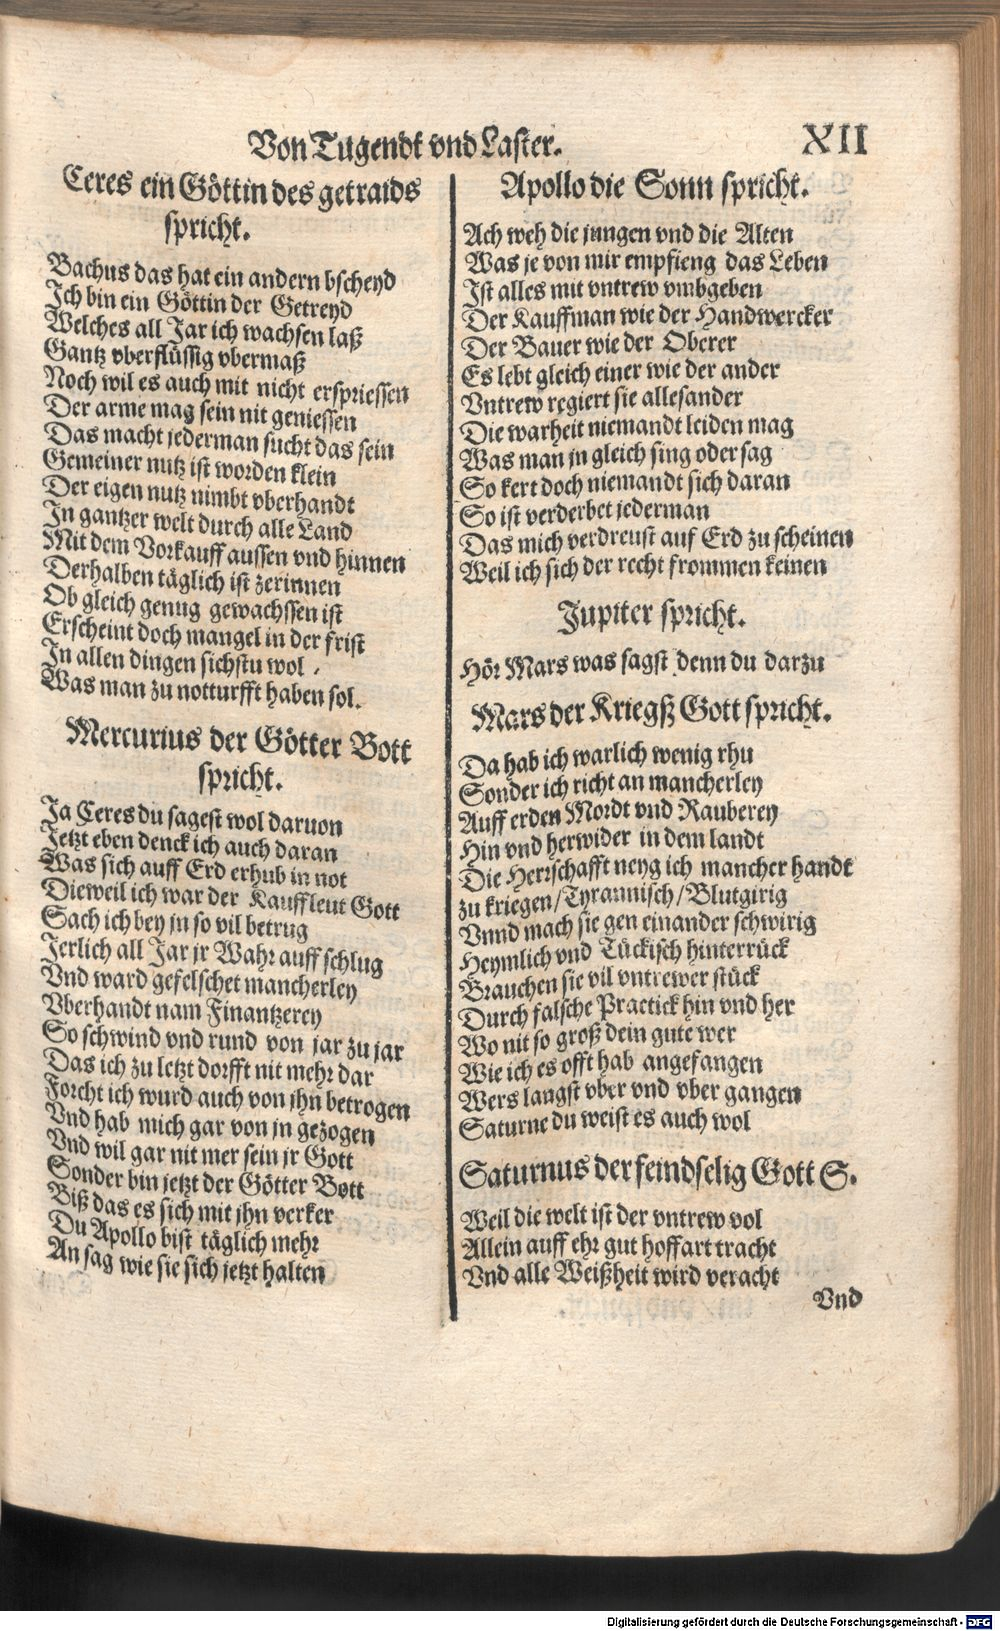 Von Tugendt vnd Laster.
XII
Ceres ein Göttin des getraids
spricht.
Bachus das hat ein andern bscheyd
Ich bin ein Göttin der Getreyd
Welches all Jar ich wachsen laß
Gantz vberflüssig vbermaß
Noch wil es auch mit nicht erspriessen
Der arme mag sein nit geniessen
Das macht jederman sucht das sein
Gemeiner nutz ist worden klein
Der eigen nutz nimbt vberhandt
In gantzer welt durch alle Land
Mit dem Vorkauff aussen vnd hinnen
Derhalben täglich ist zerinnen
Ob gleich genug gewachssen ist
Erscheint doch mangel in der frist
In allen dingen sichstu wol
Was man zu notturfft haben sol.
Mercurius der Götter Bott
spricht.
Ja Ceres du sagest wol daruon
Jetzt eben denck ich auch daran
Was sich auff Erd erhub in not
Dieweil ich war der Kauffleut Gott
Sach ich bey jn so vil betrug
Jerlich all Jar jr Wahr auff schlug
Vnd ward gefelschet mancherley
Vberhandt nam Finantzerey
So schwind vnd rund von jar zu jar
Das ich zu letzt dorfft nit mehr dar
Forcht ich wurd auch von jhn betrogen
Vnd hab mich gar von jn gezogen
Vnd wil gar nit mer sein jr Gott
Sonder bin jetzt der Götter Bott
Biß das es sich mit jhn verker
Du Apollo bist täglich mehr
An sag wie sie sich jetzt halten
Apollo die Sonn spricht.
Ach weh die jungen vnd die Alten
Was je von mir empfieng das Leben
Ist alles mit vntrew vmbgeben
Der Kauffman wie der Handwercker
Der Bauer wie der Oberer
Es lebt gleich einer wie der ander
Vntrew regiert sie allesander
Die warheit niemandt leiden mag
Was man jn gleich sing oder sag
So kert doch niemandt sich daran
So ist verderbet jederman
Das mich verdreust auf Erd zu scheinen
Weil ich sich der recht frommen keinen
Jupiter spricht.
Hör Mars was sagst denn du darzu
Mars der Kriegß Gott spricht.
Da hab ich warlich wenig rhu
Sonder ich richt an mancherley
Auff erden Mordt vnd Rauberey
Hin vnd herwider in dem landt
Die Herrschafft neyg ich mancher handt
zu kriegen/Tyrannisch/Blutgirig
Vnnd mach sie gen einander schwirig
Heymlich vnd Tückisch hinterrück
Brauchen sie vil vntrewer stück
Durch falsche Practick hin vnd her
Wo nit so groß dein gute wer
Wie ich es offt hab angefangen
Wers langst vber vnd vber gangen
Saturne du weist es auch wol
Saturnus der feindselig Gott S.
Weil die welt ist der vntrew vol
Allein auff ehr gut hoffart tracht
Vnd alle Weißheit wird veracht
Vnd
Digitalisierung gefördert durch die Deutsche Forschungsgemeinschaft - DFG